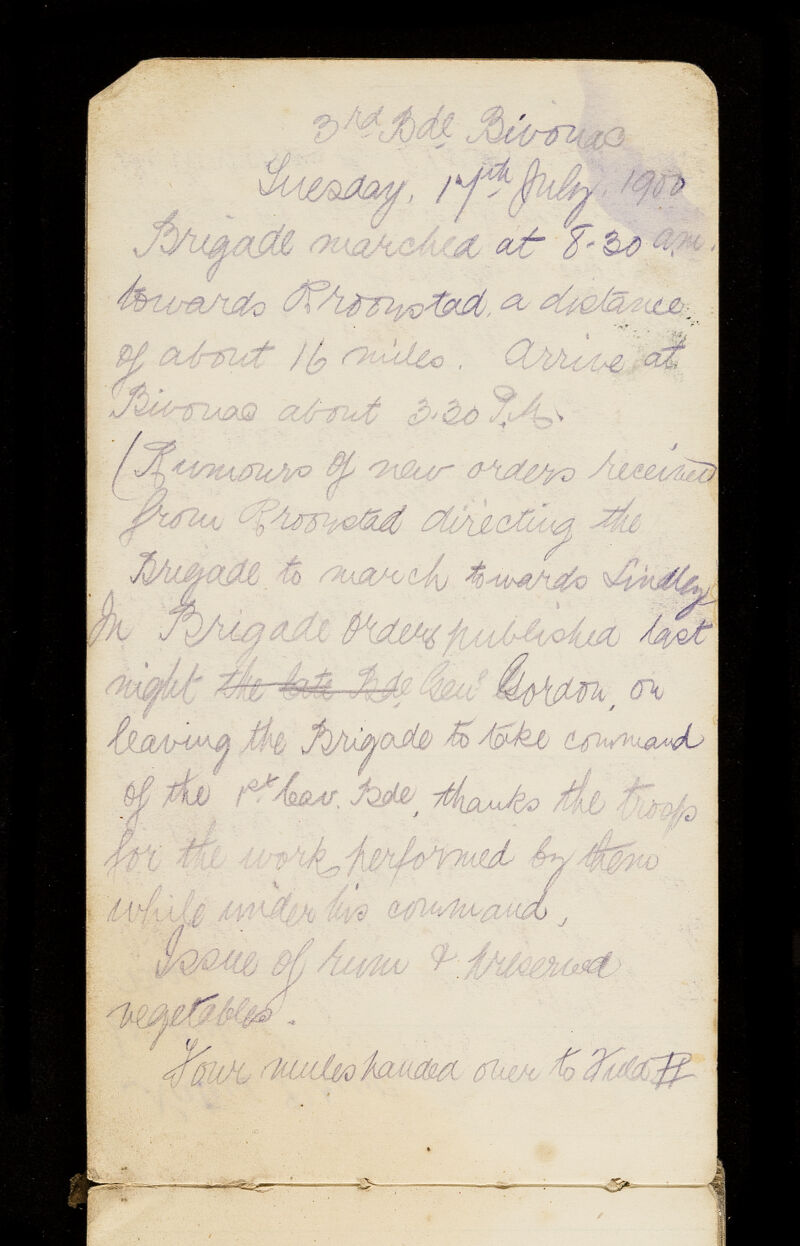 3rd Bde Bivouac
Tuesday, 17th July, 1900
Brigade marched at 8.30 a.m.
towards Kroonstad, a distance
of about 16 miles. Arrive at
Bivouac about 3.30 P.M.
(Rumours of new orders received
from Kroonstad directing the
Brigade to march towards Lindley
In Brigade Orders published last
night the late Bde Genl Gordon, on
leaving the Brigade to take command
of the 1st Cav. Bde, thanks the troops
for the work performed by them
while under his command,
Issue of rum & preserved
vegetables.
Four mules handed over to Field